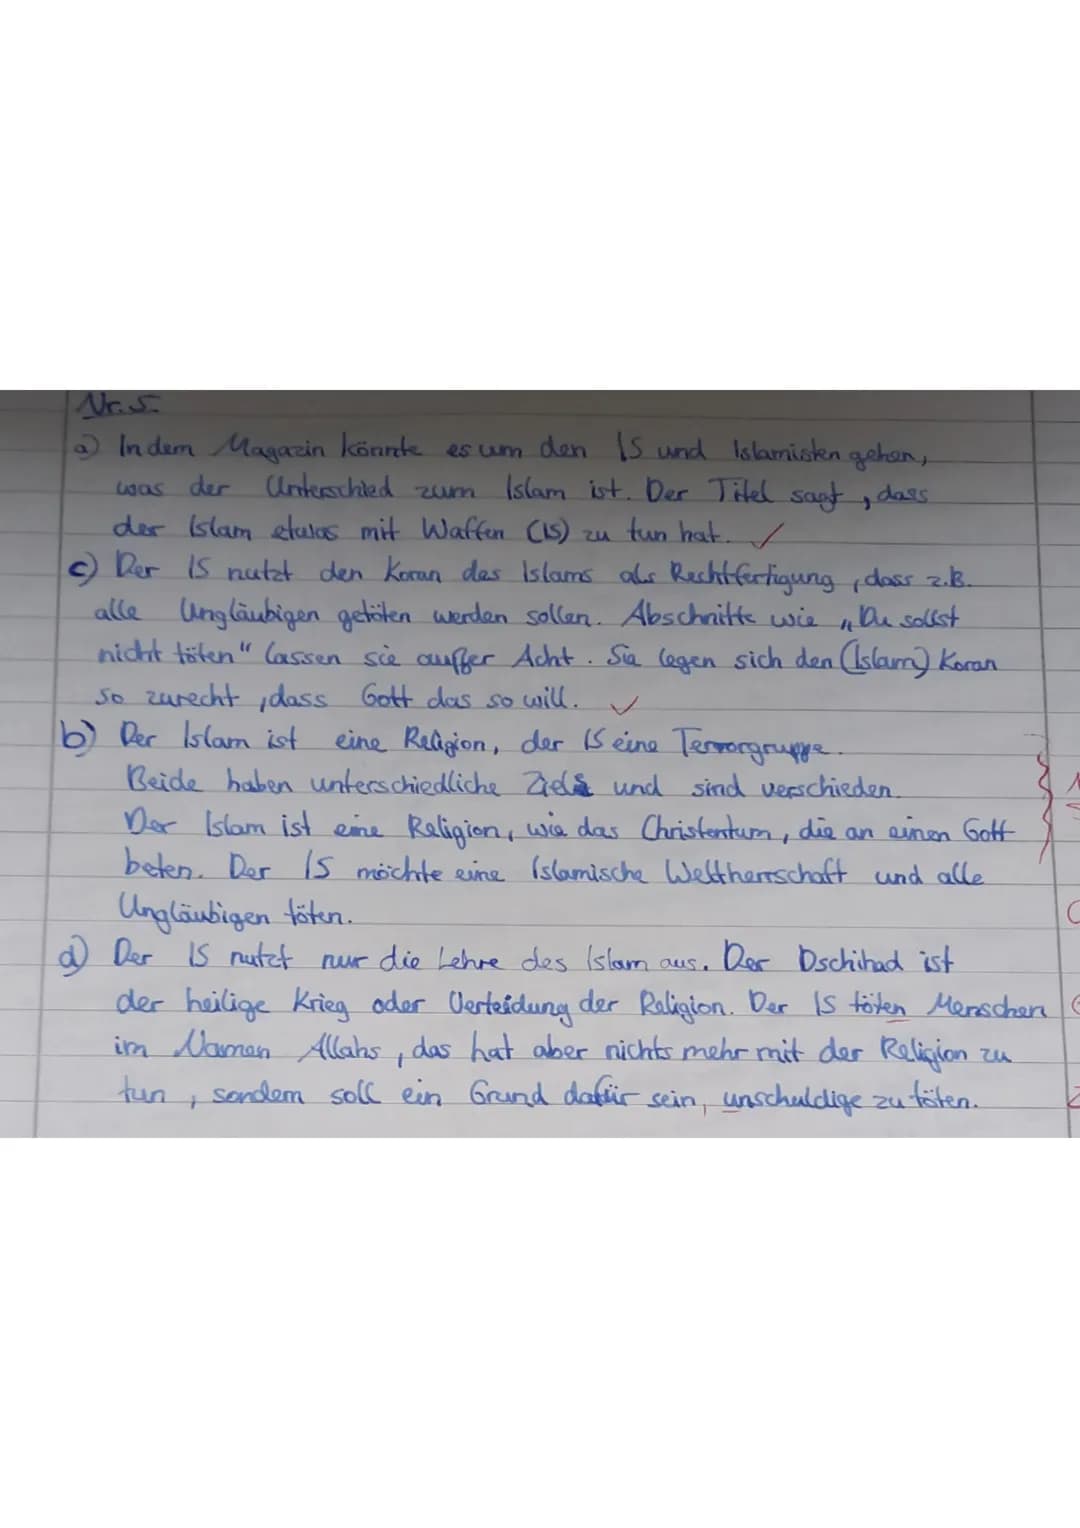 Nr. 5.
a) In dem Magazin könnte es um den IS und Islamisten gehen,
was der Unterschied zum Islam ist. Der Titel sagt, dass
der Islam etwas mit Waffen (IS) zu tun hat. ✓
c) Der IS nutzt den Koran des Islams als Rechtfertigung, dass z.B.
alle Ungläubigen getöten werden sollen. Abschnitte wie „Du sollst
nicht töten" lassen sie außer Acht. Sie legen sich den (Islam) Koran
so zurecht, dass Gott das so will. ✓
b) Der Islam ist eine Religion, der IS eine Terrorgruppe.
Beide haben unterschiedliche Ziele und sind verschieden.
Der Islam ist eine Religion, wie das Christentum, die an einen Gott
beten. Der IS möchte eine Islamische Weltherrschaft und alle
Ungläubigen töten.
d) Der IS nutzt nur die Lehre des Islam aus. Der Dschihad ist
der heilige Krieg oder Verteidung der Religion. Der IS töten Menschen
im Namen Allahs, das hat aber nichts mehr mit der Religion zu
tun, sondern soll ein Grund dafür sein, unschuldige zu töten.